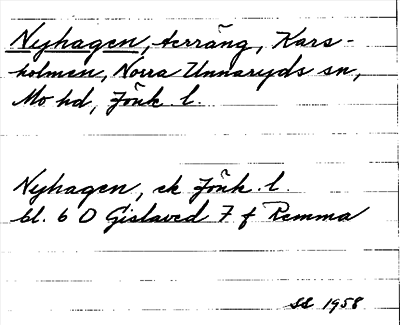 Nyhagen, terräng, Kars-
holmen, Norra Unnaryds sn,
Mo hd, Jönk. l.
Nyhagen, ek Jönk. l.
bl. 6 O Gislaved 7 f Remma
SS 1958